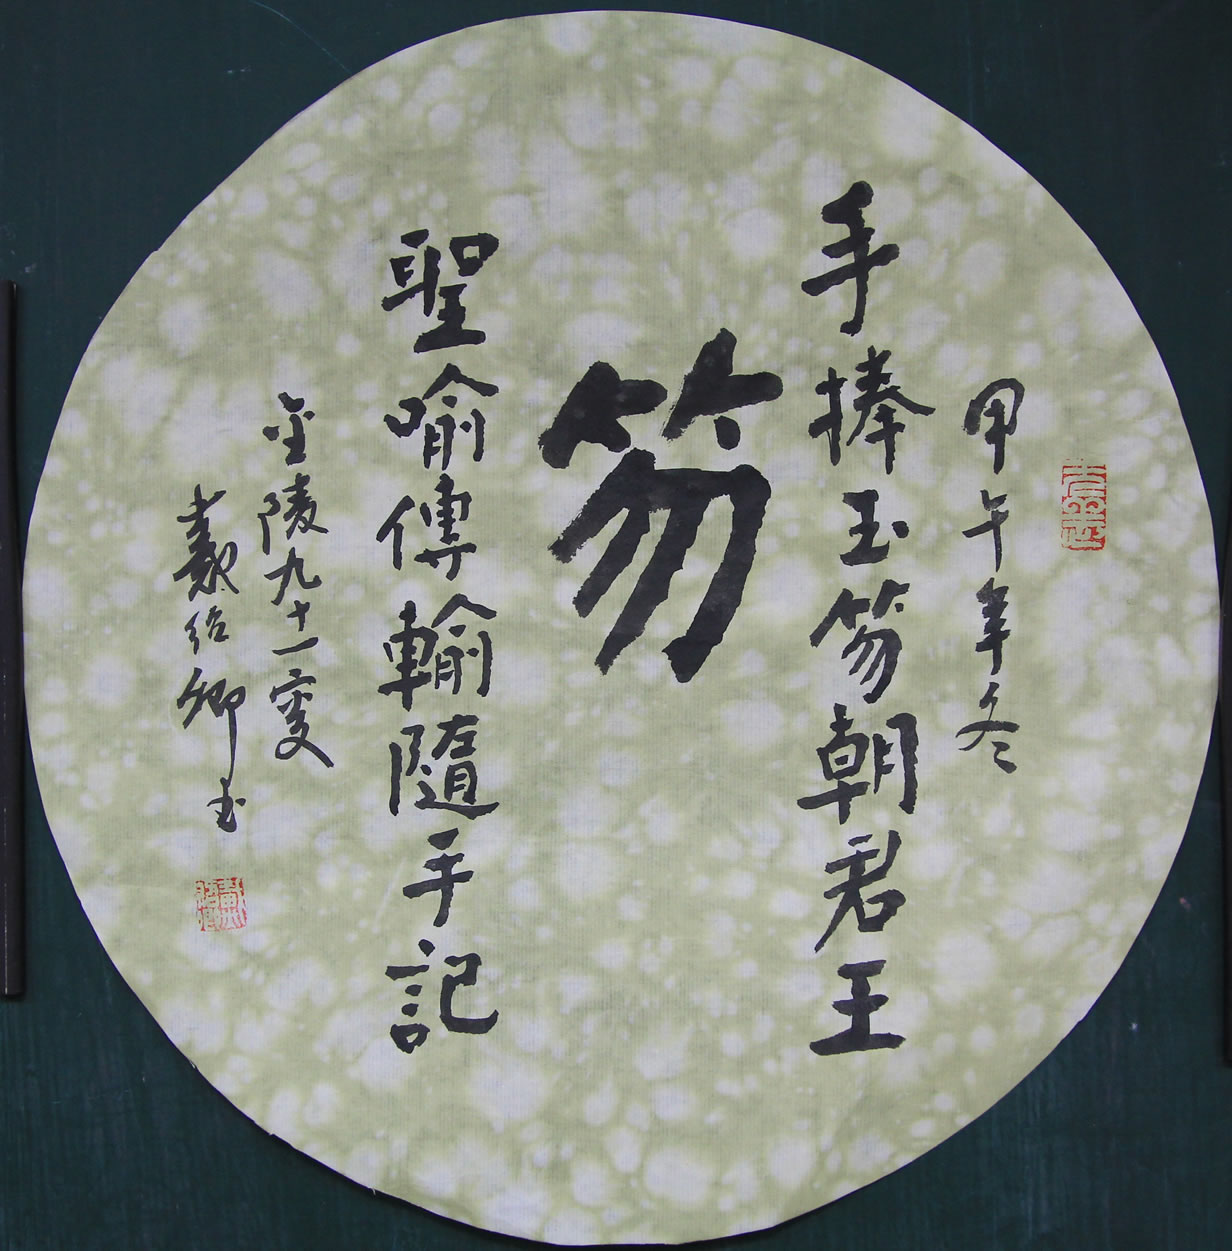 甲午年冬
手捧玉笏朝君王
笏
聖喻傳輸隨手記
金陵九十一叟
戴绍卿书